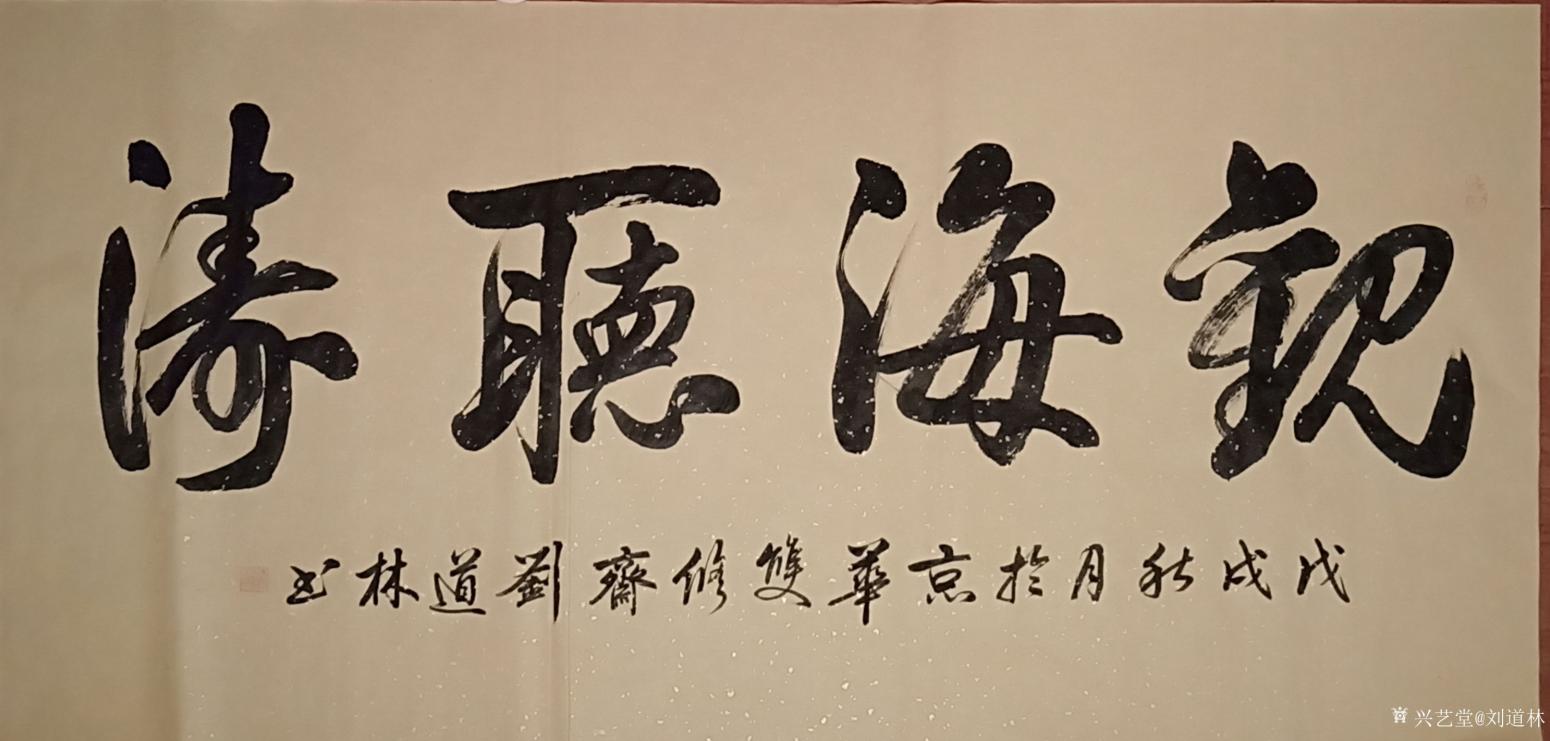 觀海聽濤
戊戌秋月於京華雙修齋劉道林书
兴艺堂@刘道林